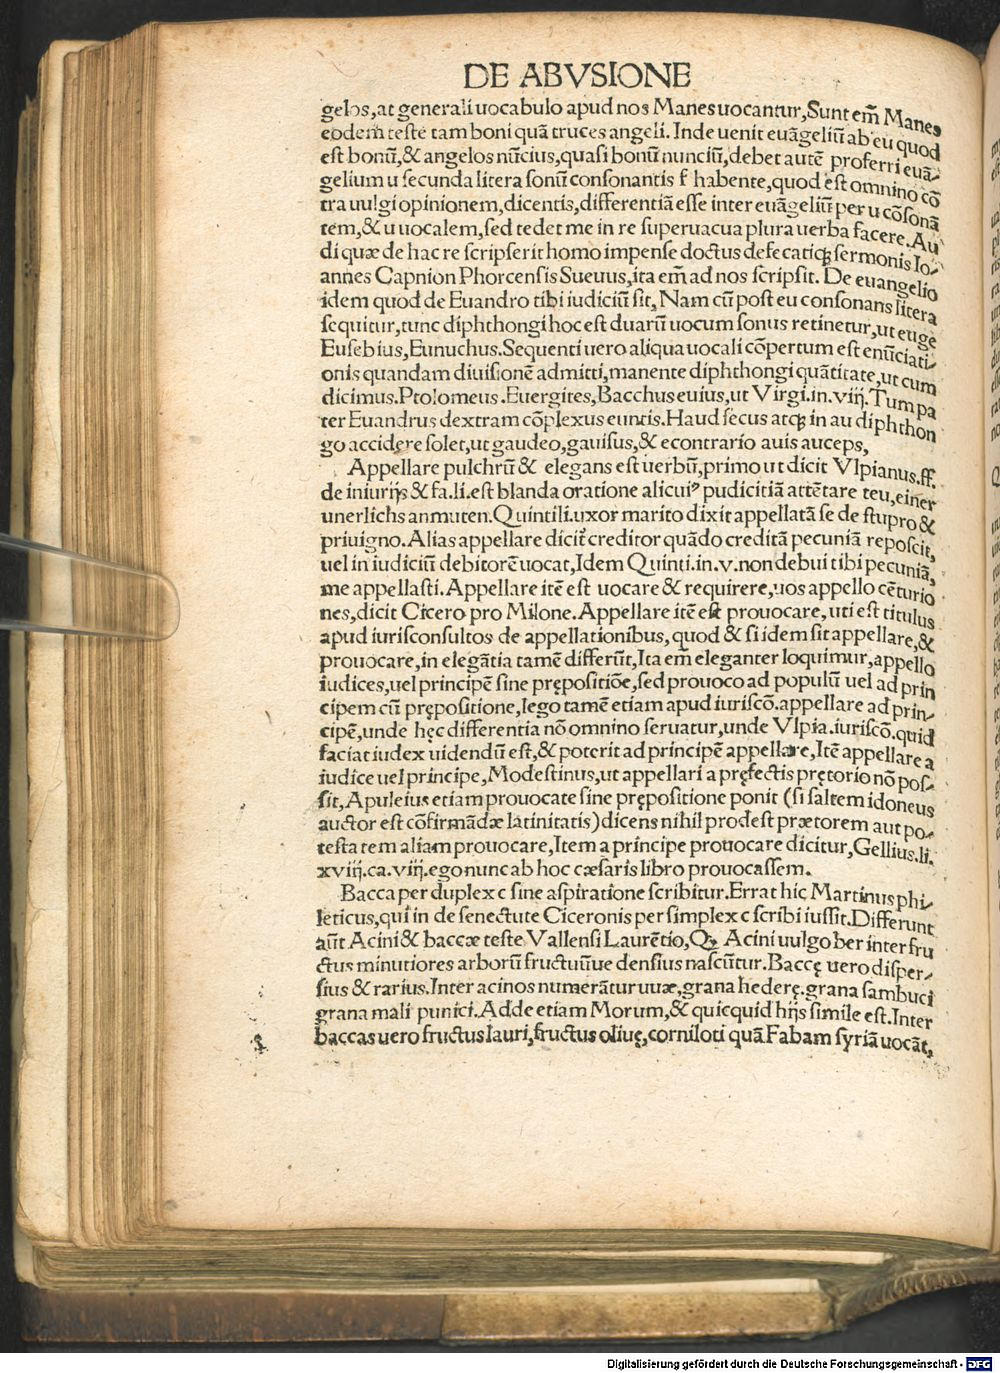 DE ABVSIONE
gelos, at generali uocabulo apud nos Manes uocantur, Sunt em̃ Manes
eodem teste tam boni quã truces angeli. Inde uenit euãgeliũ ab eu quod
est bonũ, & angelos nũcius, quasi bonũ nunciũ, debet autẽ proferri euã-
gelium u secunda litera sonũ consonantis f habente, quod est omnino cõ
tra uulgi opinionem, dicentis, differentiã esse inter euãgeliũ per u cõsonã
tem, & u uocalem, sed tedet me in re superuacua plura uerba facere. Au
di quæ de hac re scripserit homo impense doctus defecatiqꝫ sermonis Io-
annes Capnion Phorcensis Sueuus, ita em̃ ad nos scripsit. De euangelio
idem quod de Euandro tibi iudiciũ sit, Nam cũ post eu consonans litera
sequitur, tunc diphthongi hoc est duarũ uocum sonus retinetur, ut euge
Eusebius, Eunuchus. Sequenti uero aliqua uocali cõpertum est enũciati-
onis quandam diuisionẽ admitti, manente diphthongi quãtitate, ut cum
dicimus. Ptolomeus. Euergites, Bacchus euius, ut Virgi. in. viij. Tum pa
ter Euandrus dextram cõplexus euntis. Haud secus atqꝫ in au diphthon
go accidere solet, ut gaudeo, gauisus, & econtrario auis auceps,
Appellare pulchrũ & elegans est uerbũ, primo ut dicit Vlpianus. ff.
de iniurijs & fa. li. est blanda oratione alicuiꝰ pudicitiã attẽtare teu, einer
unerlichs anmuten. Quintili. uxor marito dixit appellatã se de stupro &
priuigno. Alias appellare dicit̃ creditor quãdo creditã pecuniã reposcit,
uel in iudiciũ debitorẽ uocat, Idem Quinti. in. v. non debui tibi pecuniã,
me appellasti. Appellare itẽ est uocare & requirere, uos appello cẽturio
nes, dicit Cicero pro Milone. Appellare itẽ est prouocare, uti est titulus
apud iurisconsultos de appellationibus, quod & si idem sit appellare, &
prouocare, in elegãtia tamẽ differũt, Ita em̃ eleganter loquimur, appello
iudices, uel principẽ sine prępositiõe, sed prouoco ad populũ uel ad prin
cipem cũ prępositione, lego tamẽ etiam apud iuriscõ. appellare ad prin-
cipẽ, unde hęc differentia nõ omnino seruatur, unde Vlpia. iuriscõ. quid
faciat iudex uidendũ est, & poterit ad principẽ appellare, Itẽ appellare a
iudice uel principe, Modestinus, ut appellari a pręfectis pretorio nõ pos-
sit, Apuleius etiam prouocate sine prępositione ponit (si saltem idoneus
auctor est cõfirmãdæ latinitatis) dicens nihil prodest prætorem aut po-
testatem aliam prouocare, Item a principe prouocare dicitur, Gellius. li.
xviij. ca. viij. ego nunc ab hoc cæsaris libro prouocassem.
Bacca per duplex c sine aspiratione scribitur. Errat hic Martinus phi-
leticus, qui in de senectute Ciceronis per simplex c scribi iussit. Differunt
aũt Acini & baccæ teste Vallensi Laurẽtio, Qꝫ Acini uulgo ber inter fru
ctus minutiores arborũ fructuũue densius nascũtur. Baccę uero disper-
sius & rarius. Inter acinos numerãtur uuæ, grana hederę. grana sambuci
grana mali punici. Adde etiam Morum, & quicquid hijs simile est. Inter
baccas uero fructus lauri, fructus oliuę, corniloti quã Fabam syriã uocãt,
Digitalisierung gefördert durch die Deutsche Forschungsgemeinschaft - DFG